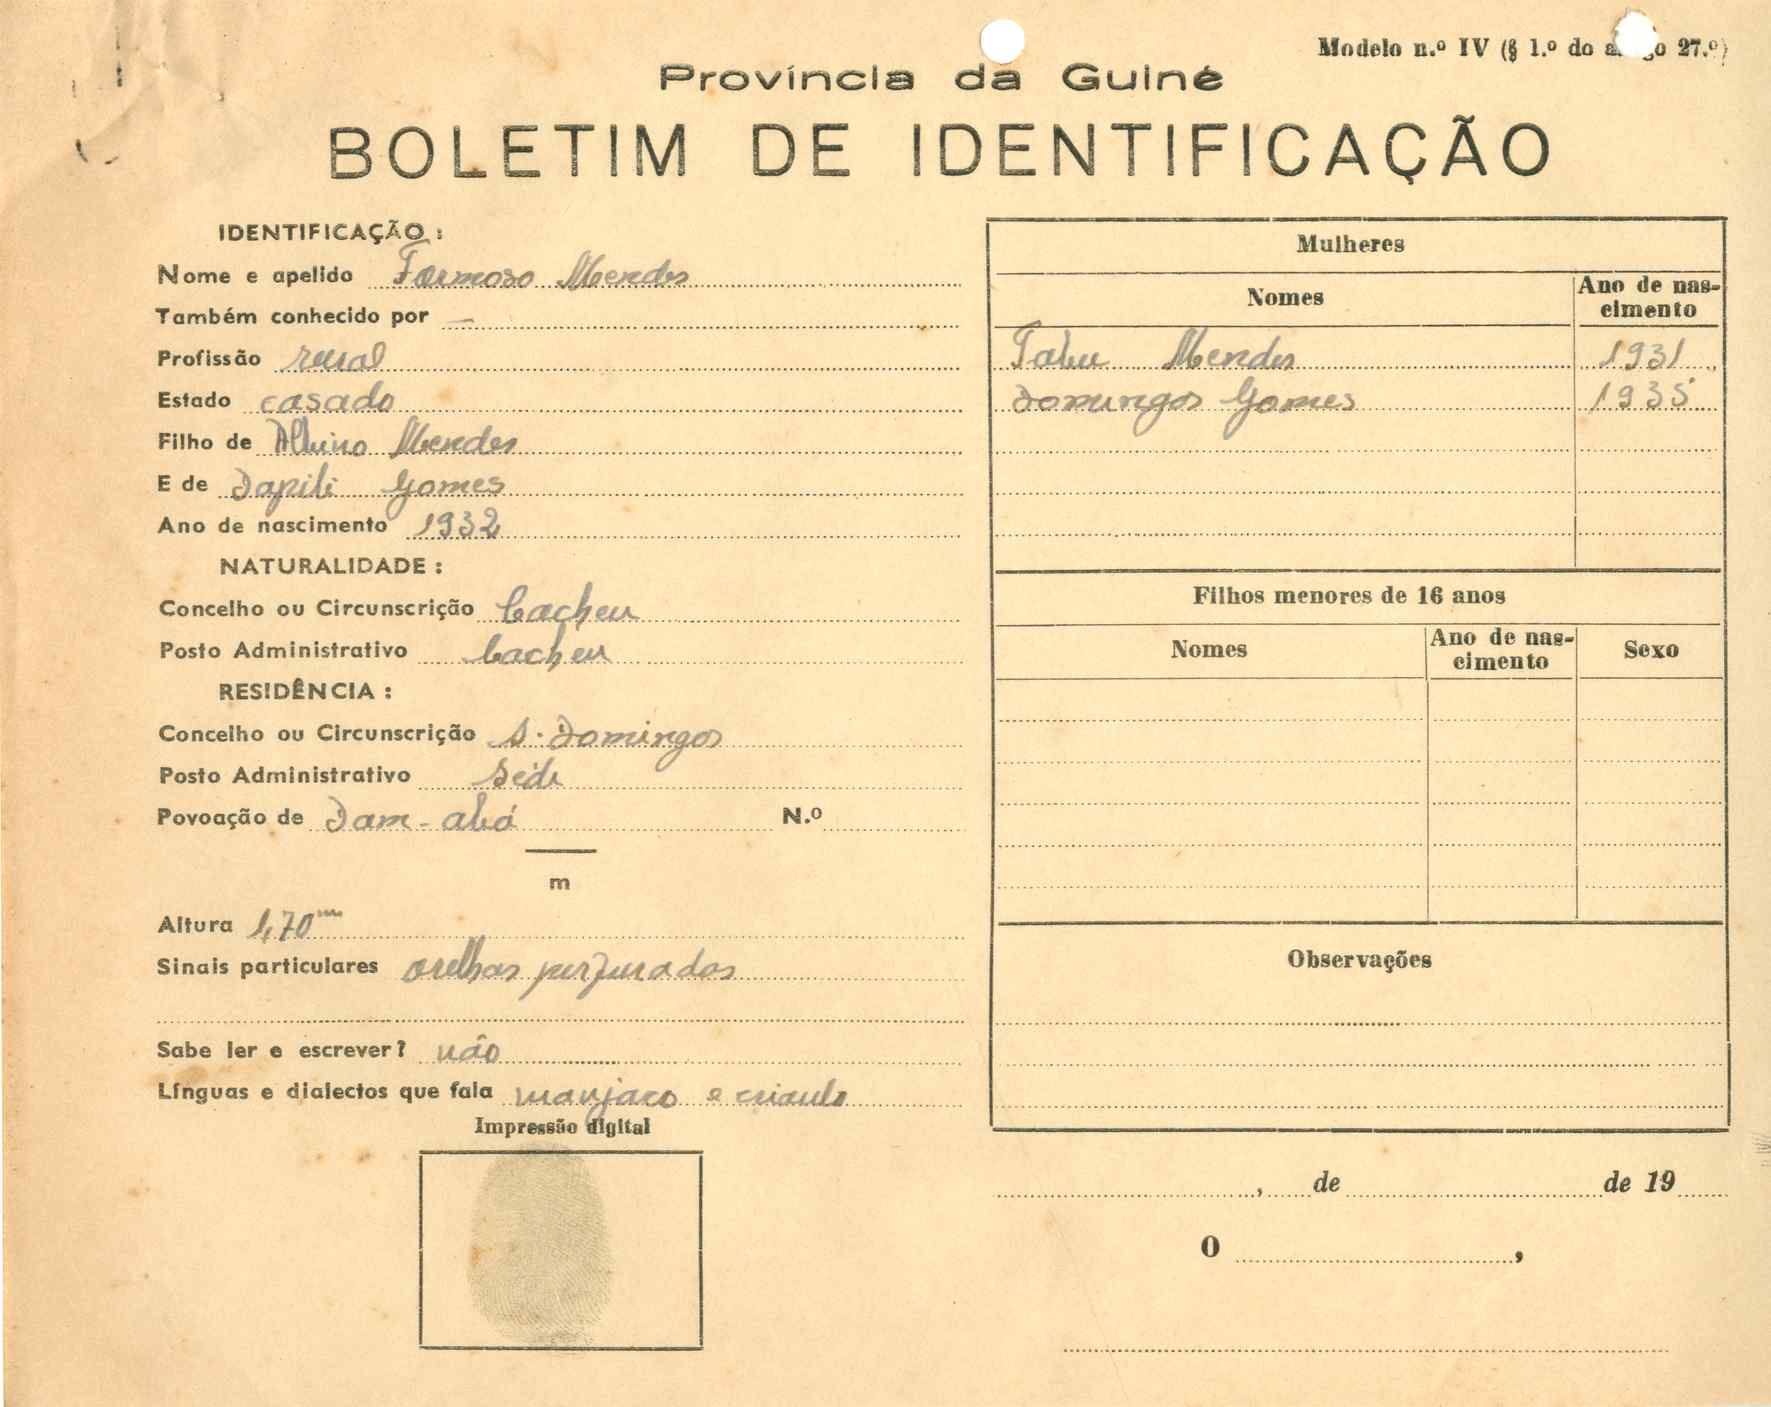 Modelo n.º IV (§ 1.º do a   o 27.º)
Província da Guiné
BOLETIM DE IDENTIFICAÇÃO
IDENTIFICAÇÃO:
Nome e apelido Formoso Mendes
Também conhecido por —
Profissão rural
Estado casado
Filho de Albino Mendes
E de Dapili Gomes
Ano de nascimento 1932
NATURALIDADE:
Concelho ou Circunscrição Cacheu
Posto Administrativo Cacheu
RESIDÊNCIA:
Concelho ou Circunscrição S. Domingos
Posto Administrativo Sede
Povoação de N.º
m
Altura 1,70m
Sinais particulares orelhas perfurados
Sabe ler e escrever? não
Línguas e dialectos que fala manjaco e crioulo
Impressão digital
Mulheres
Nomes Ano de nas-
cimento
Mendes 1931
Domingos Gomes 1935
Filhos menores de 16 anos
Nomes Ano de nas-
cimento Sexo
Observações
, de de 19
O ,